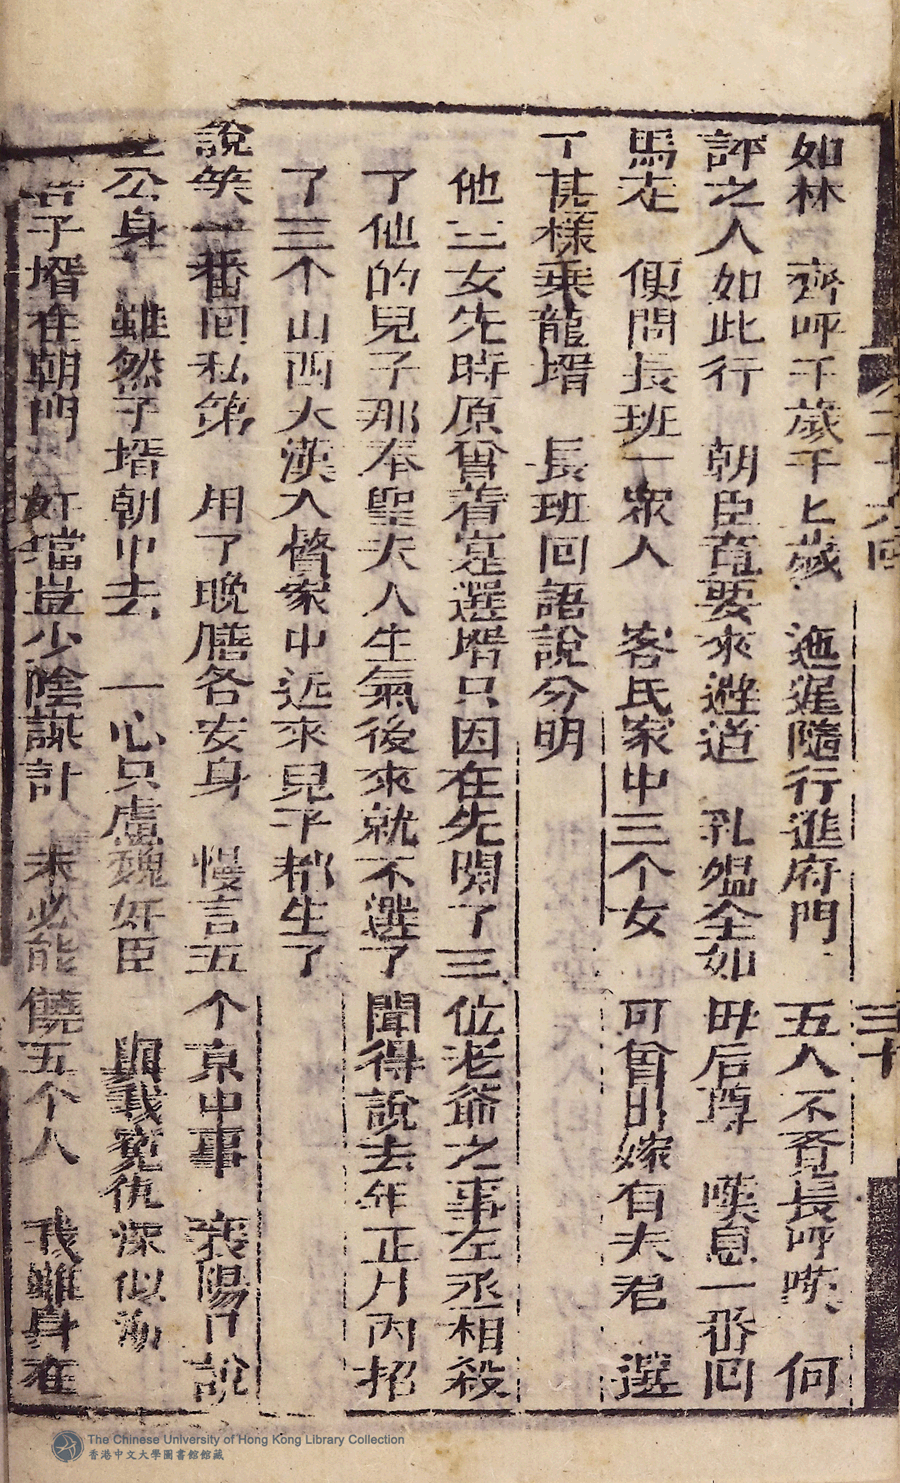 如林 齊呼千歲千上歲 迤邐隨行進府門 五人不覓長呼嘆 何
評之人如此行 朝臣竟要來避道 乳媪全如毋后尊 嘆息一番囘
馬走 便問長班一衆人 客氏家中三个女 可曾出嫁有夫君 選
了甚樣乗龍壻 長班回語說分明
他三女先時原曾着寔選壻只因在先閙了三位老爺之事左丞相殺
了他的兒子那奉聖夫人生氣後來就不選了聞得說去年正月內招
了三个山西大漢入贅家中近來兒子都生了
說笑一番囘私第 用了晚膳各安身 慢言五个京中事 襄陽且說
公身 雖然子壻朝中去 一心只慮魏奸臣 與我寃仇深似海
子壻在朝門 奸璫豈少陰謀計 未必能饒五个人 我雖身在
三十
The Chinese University of Hong Kong Library Collection
香港中文大學圖書館館藏